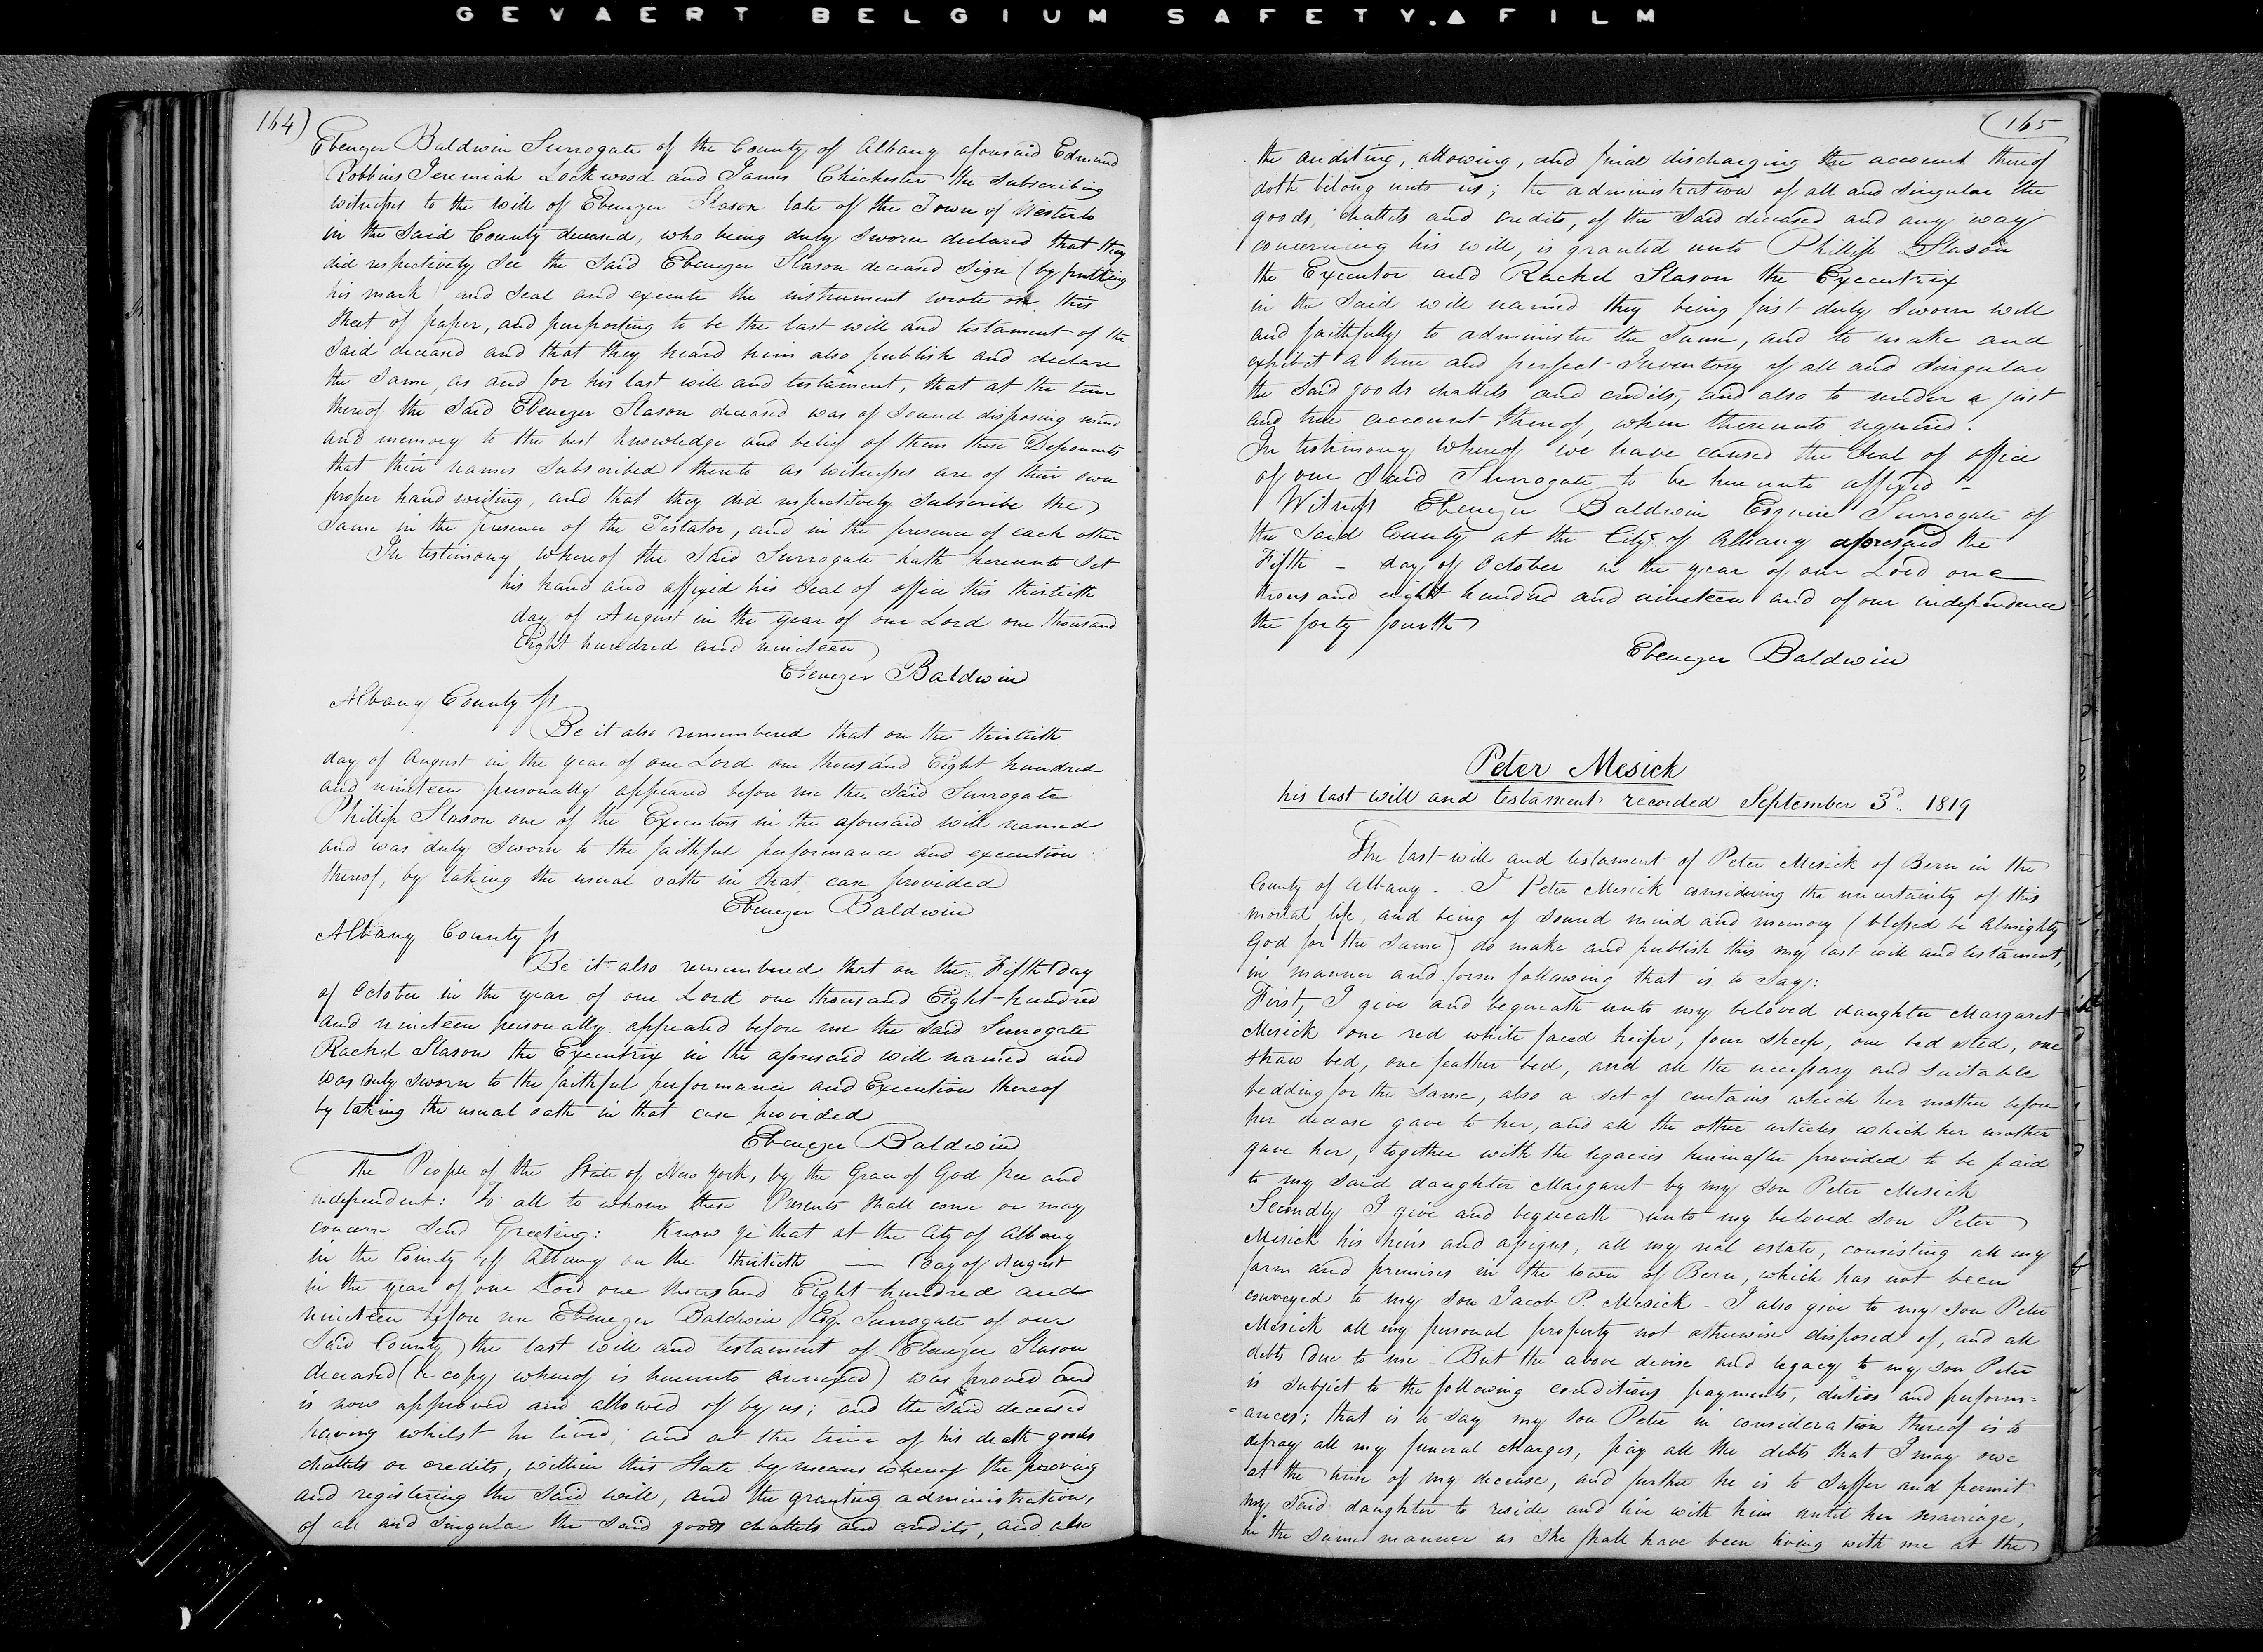 GEVAERT BELGIUM SAFETY.▲FILM
164)
Ebenezer Baldwin Surrogate of the County of Albany aforesaid Edmund
Robbins Jeremiah Lockwood and James Chichester the subscribing
witnesses to the will of Ebenezer Slason late of the Town of Westerlo
in the Said County deceased, who being duly Sworn declared that they
did respectively See the Said Ebenezer Slason deceased Sign (by putting
his mark) and Seal and execute the instrument wrote on this
Sheet of paper, and purporting to be the last will and testament of the
Said deceased and that they heard him also publish and declare
the Same, as and for his last will and testament, that at the time
thereof the Said Ebenezer Slason deceased was of Sound disposing mind
and memory to the best knowledge and belief of them these Deponents
that their names Subscribed thereto as witnesses are of their own
proper hand writing, and that they did respectively Subscribe the
Same in the presence of the Testator, and in the presence of each other
In testimony whereof the Said Surrogate hath hereunto Set
his hand and affixed his Seal of office this thirtieth
day of August in the year of our Lord one thousand
Eight hundred and nineteen
Ebenezer Baldwin
Albany County ss
Be it also remembered that on the thirtieth
day of August in the year of our Lord one thousand Eight hundred
and nineteen personally appeared before me the Said Surrogate
Phillip Slason one of the Executors in the aforesaid will named
and was duly Sworn to the faithful performance and execution
thereof, by taking the usual oath in that case provided
Ebenezer Baldwin
Albany County ss
Be it also remembered that on the Fifth day
of October in the year of our Lord one thousand Eight hundred
and nineteen personally appeared before me the Said Surrogate
Rachel Slason the Executrix in the aforesaid will named and
was duly Sworn to the faithful performance and Execution thereof
by taking the usual oath in that case provided
Ebenezer Baldwin
The People of the State of New York, by the Grace of God free and
independent: to all to whom these Presents Shall come or may
concern Send Greeting: Know ye that at the City of Albany
in the County of Albany on the thirtieth — Day of August
in the year of our Lord one thousand Eight hundred and
nineteen before me Ebenezer Baldwin Esq. Surrogate of our
Said County the last will and testament of Ebenezer Slason
deceased (a copy whereof is hereunto annexed) was proved and
is now approved and allowed of by us; and the Said deceased
having whilst he lived, and at the time of his death goods
chattels or credits, within this State by means whereof the proving
and registering the Said will, and the granting administration,
of all and Singular the Said goods chattels and credits, and also
(165
the auditing, allowing, and final discharging the account thereof
doth belong unto us; the administration of all and Singular the
goods, chattels and credits, of the Said deceased and any way
concerning his will, is granted unto Phillip Slason
the Executor and Rachel Slason the Executrix
in the Said will named they being first duly Sworn well
and faithfully to administer the Same, and to make and
exhibit a true and perfect Inventory of all and Singular
the Said goods chattels and credits, and also to render a just
and true account thereof, when thereunto required.
In testimony whereof we have caused the Seal of office
of our Said Surrogate to be hereunto affixed -
Witness Ebenezer Baldwin Esquire Surrogate of
the Said County at the City of Albany aforesaid the
Fifth - day of October in the year of our Lord one
thousand eight hundred and nineteen and of our independence
the forty fourth
Ebenezer Baldwin
Peter Mesick
his last will and testament recorded September 3d. 1819
The last will and testament of Peter Mesick of Bern in the
County of Albany - I Peter Mesick considering the uncertainty of this
mortal life, and being of Sound mind and memory (blessed be Almighty
God for the Same) do make and publish this my last will and testament,
in manner and form following that is to Say:
First, I give and bequeath unto my beloved daughter Margaret
Mesick one red white faced heifer, four Sheep, one bed sted, one
straw bed, one feather bed, and all the necessary and Suitable
bedding for the Same, also a Set of curtains which her mother before
her decease gave to her, and all the other articles which her mother
gave her, together with the legacies hereinafter provided to be paid
to my Said daughter Margaret by my Son Peter Mesick
Secondly I give and bequeath unto my beloved Son Peter
Mesick his heirs and assigns, all my real estate, consisting all my
farm and premises in the town of Bern, which has not been
conveyed to my Son Jacob P. Mesick - I also give to my Son Peter
Mesick all my personal property not otherwise disposed of, and all
debts due to me - But the above devise and legacy to my Son Peter
is Subject to the following conditions payments, duties and perform=
=ances; that is to Say my Son Peter in consideration thereof is to
defray all my funeral charges, pay all the debts that I may owe
at the time of my decease, and further he is to Suffer and permit
my Said daughter to reside and live with him until her marriage,
in the Same manner as She Shall have been living with me at the